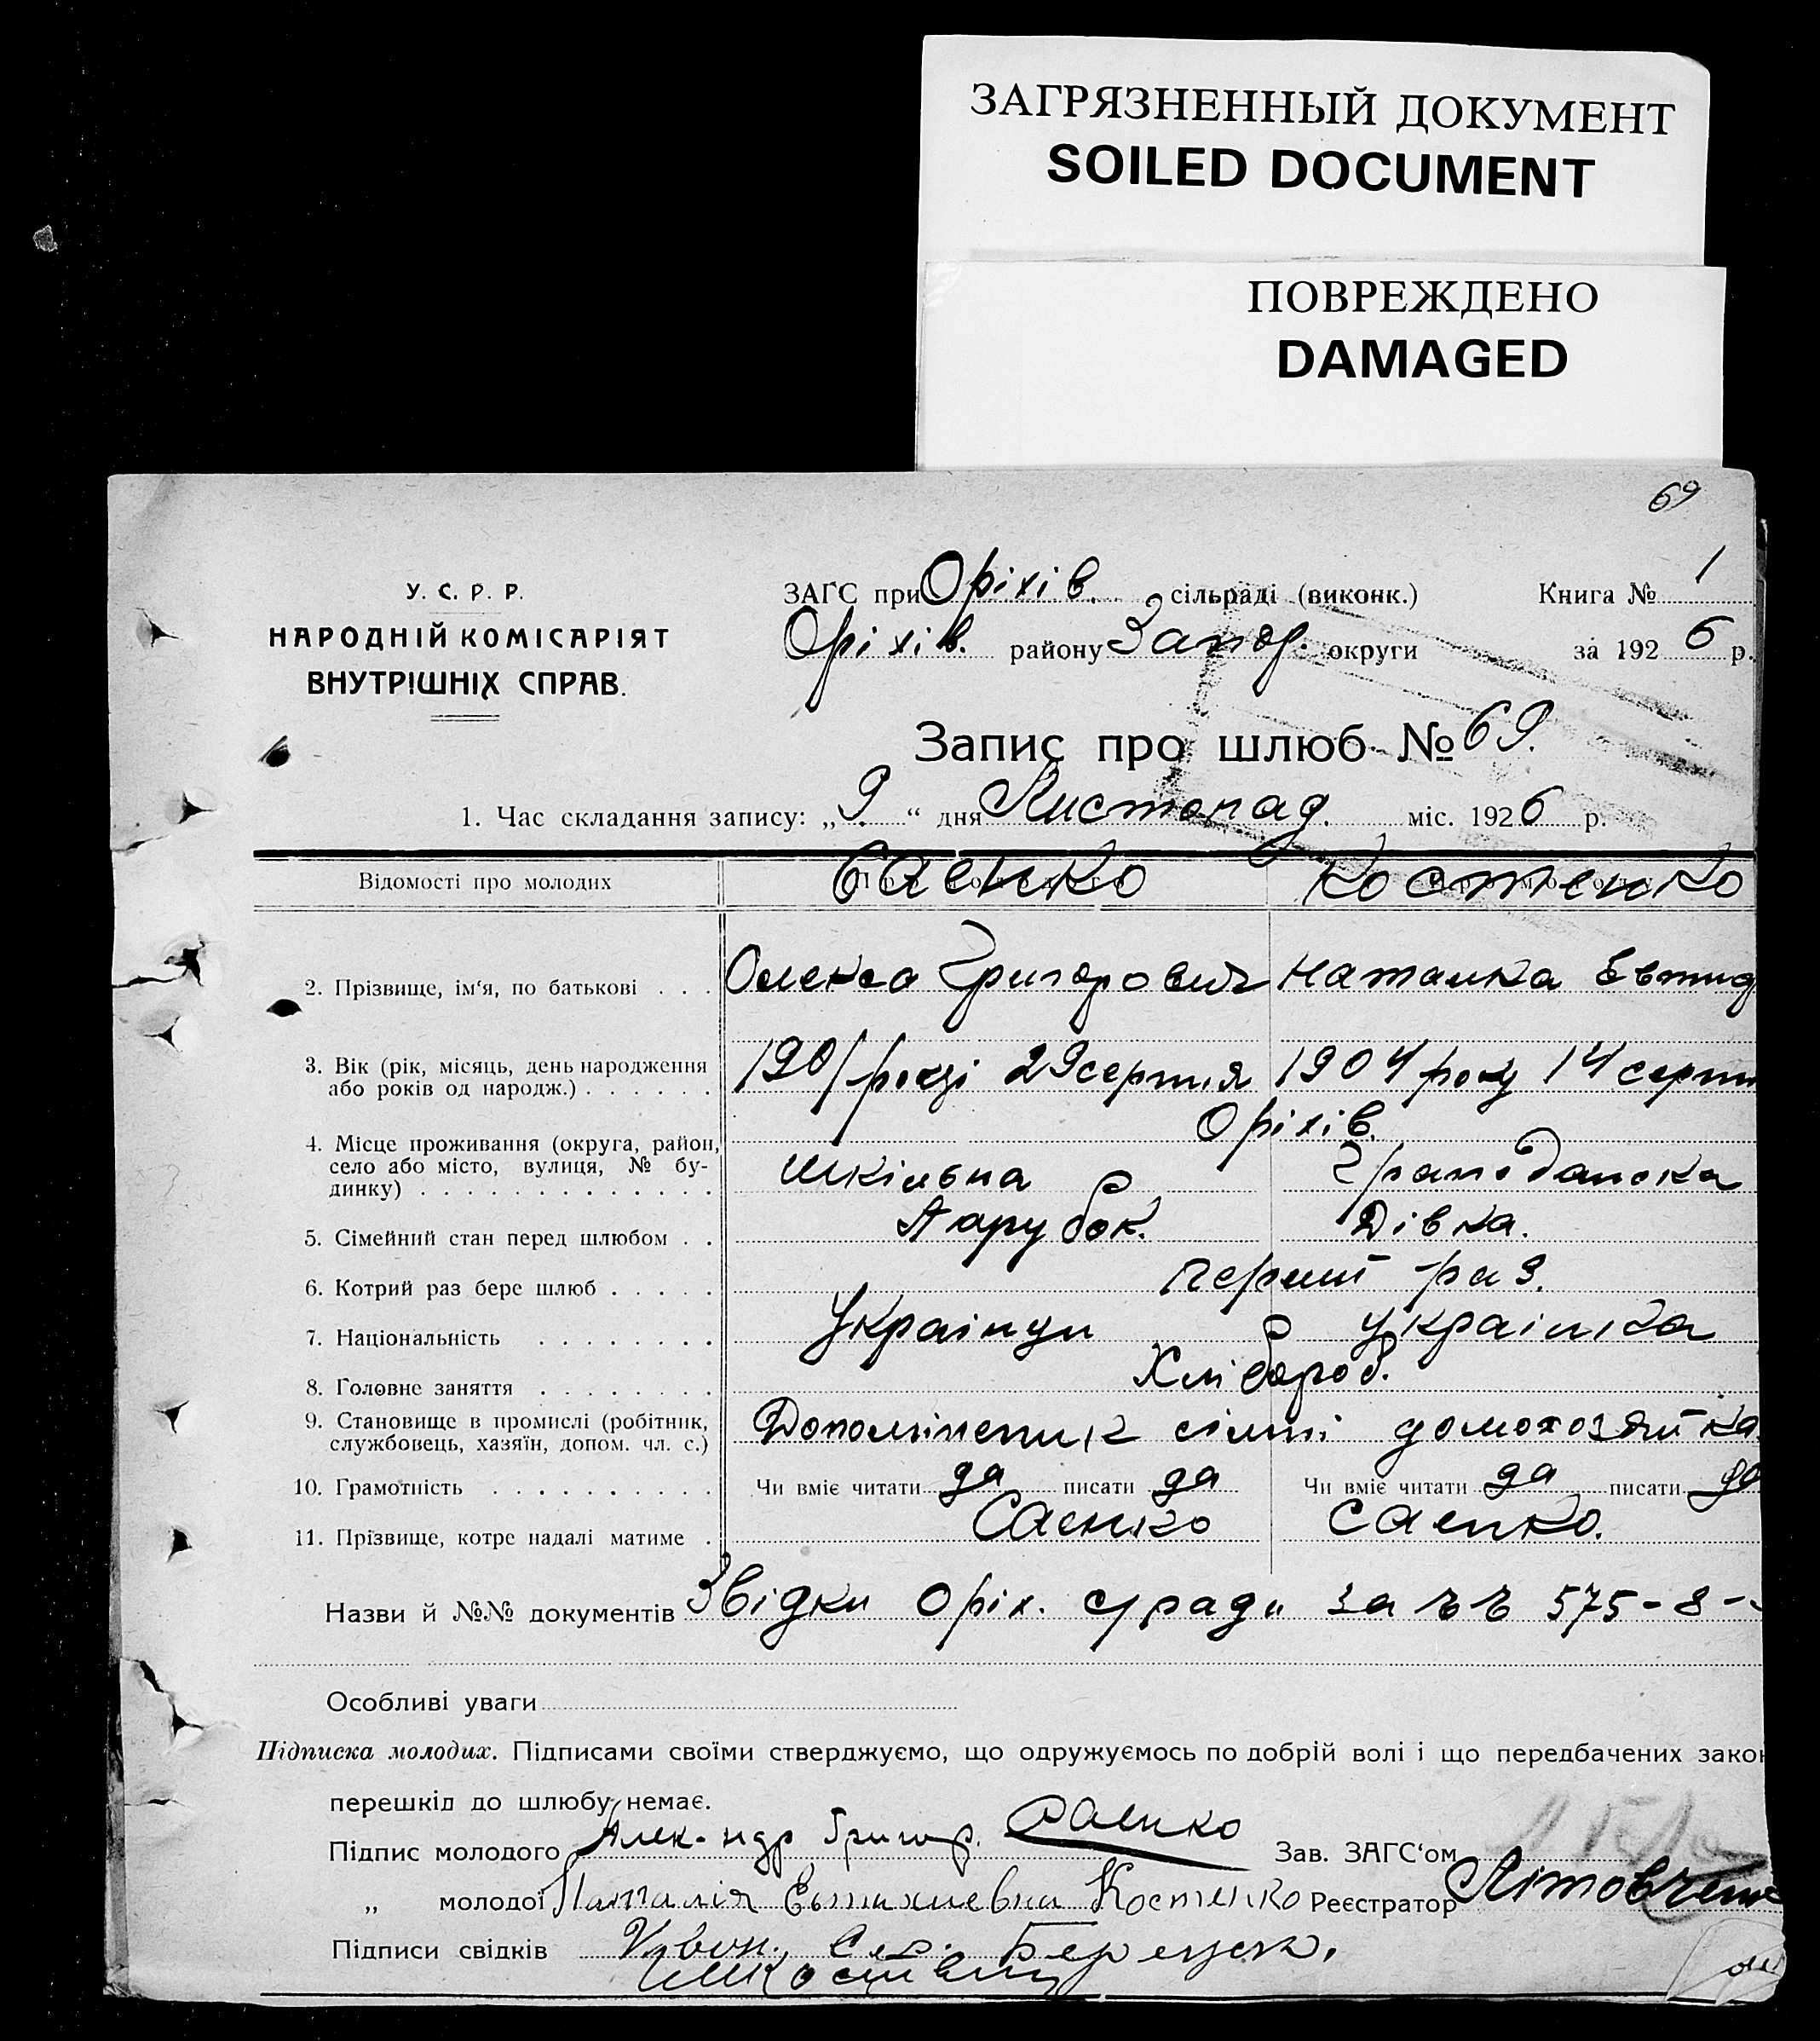 ЗАГРЯЗНЕННЫЙ ДОКУМЕНТ
SOILED DOCUMENT
ПОВРЕЖДЕНО
DAMAGED
69
У. С. Р. Р.
НАРОДНІЙ КОМІСАРІЯТ
ВНУТРІШНІХ СПРАВ.
ЗАГС при Оріхів. сільраді (виконк.) Книга № 1
Оріхів. району Запор. округи за 1926 р.
Запис про шлюб № 69.
1. Час складання запису: „9“ дня Листопад. міс. 1926 р.
Відомості про молодих Саенко Костенко
2. Прізвище, ім'я, по батькові . . . Олекса Григорович Наталка Евтид
3. Вік (рік, місяць, день народження 1901 році 29 серпня 1904 року 14 серпн
або років од народж.) . . . . . .
4. Місце проживання (округа, район, Оріхів.
село або місто, вулиця, № бу- Шкільна Гражданска
динку) . . . . . . . . . . . . .
5. Сімейний стан перед шлюбом . . Парубок. Дівка.
6. Котрий раз бере шлюб . . . . . перший раз.
7. Національність . . . . . . . Українци українка
8. Головне заняття . . . . . . . . Хлібороб.
9. Становище в промислі (робітник, сімі домохозяйка
службовець, хазяїн, допом. чл. с.)
10. Грамотність . . . . . . . . . . Чи вміє читати да писати да Чи вміє читати да писати да
11. Прізвище, котре надалі матиме . Саенко Саенко.
Назви й №№ документів Звідки Оріх. с/ради за 575-8-
Особливі уваги
Підписка молодих. Підписами своїми стверджуємо, що одружуємось по добрій волі і що передбачених закон
перешкід до шлюбу немає.
Підпис молодого Алек-ндр Григор. Саенко Зав. ЗАГС'ом
„ молодої Наталія Евтихиевна Костенко Реєстратор Літовчен
Підписи свідків